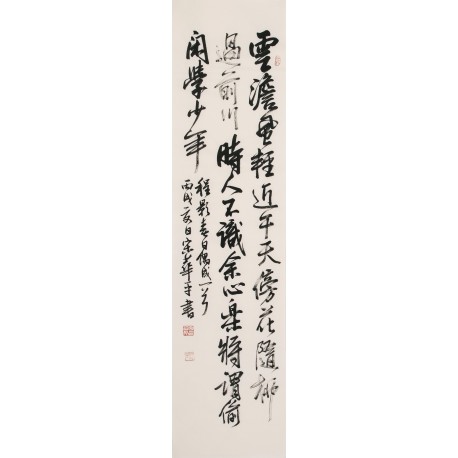 雲澹風輕近午天傍花隨柳
過前川時人不識余心樂將謂偷
閑學少年
程顥春日偶成一首
丙戌夏日宋華平書